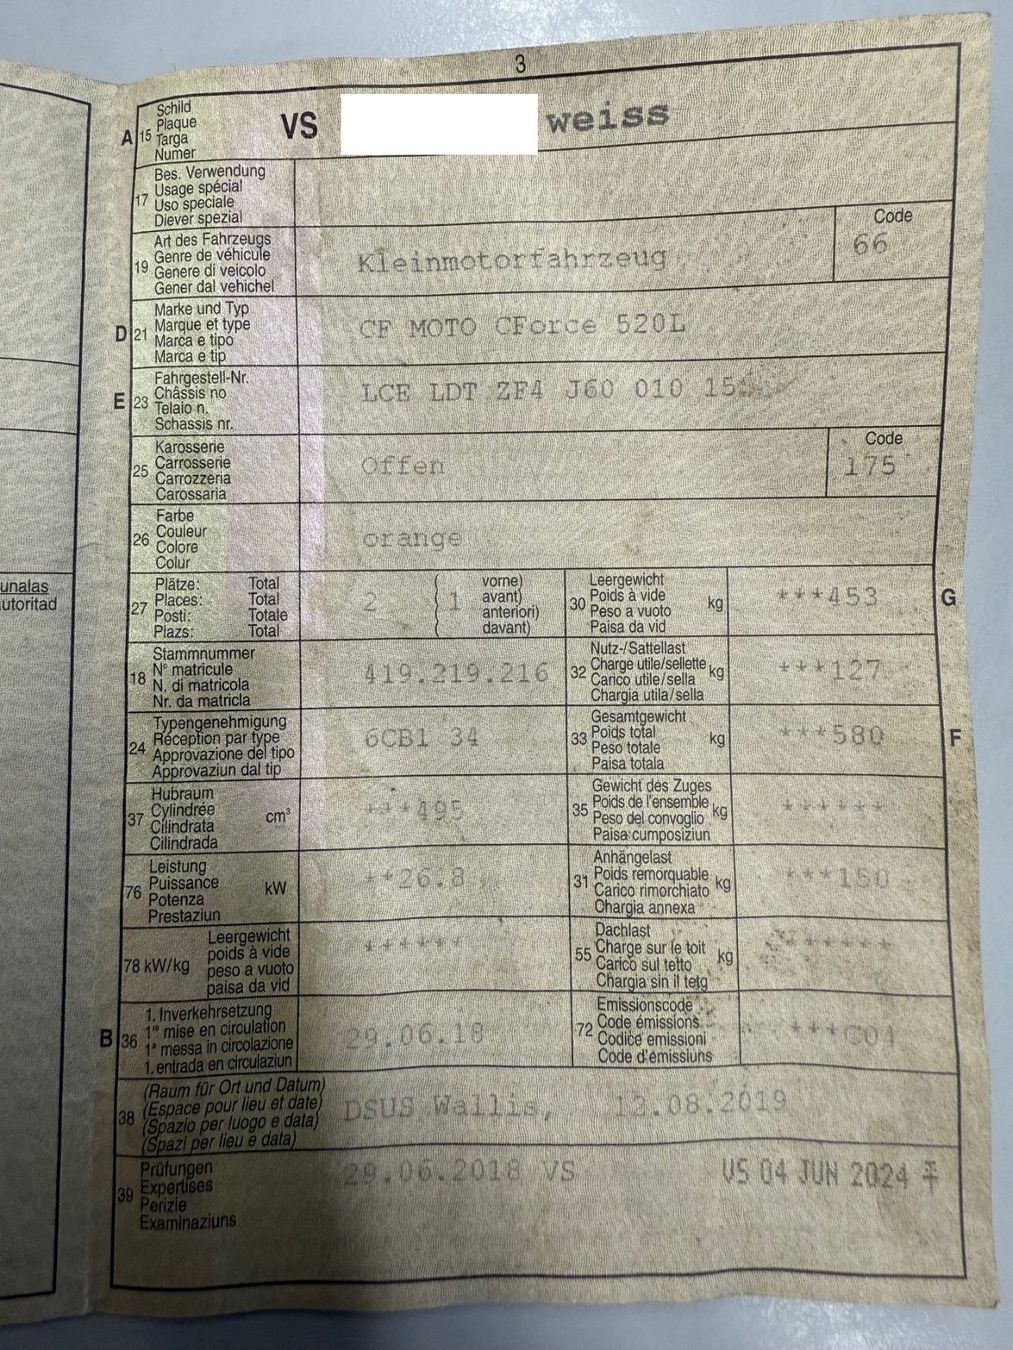 3
A 15 Schild
Plaque
Targa
Numer
VS weiss
17 Bes. Verwendung
Usage spécial
Uso speciale
Diever spezial
19 Art des Fahrzeugs
Genre de véhicule
Genere di veicolo
Gener dal vehichel
Kleinmotorfahrzeug
Code
66
D 21 Marke und Typ
Marque et type
Marca e tipo
Marca e tip
CF MOTO CForce 520L
E 23 Fahrgestell-Nr.
Châssis no
Telaio n.
Schassis nr.
LCE LDT ZF4 J60 010 15
25 Karosserie
Carrosserie
Carrozzeria
Carossaria
Offen
Code
175
26 Farbe
Couleur
Colore
Colur
orange
27 Plätze: Total
Places: Total
Posti: Totale
Plazs: Total
2 ( 1 vorne)
( avant)
( anteriori)
( davant)
30 Leergewicht
Poids à vide
Peso a vuoto
Paisa da vid
kg
***453
G
18 Stammnummer
N° matricule
N. di matricola
Nr. da matricla
419.219.216
32 Nutz-/Sattellast
Charge utile/sellette
Carico utile/sella
Chargia utila/sella
kg
***127
24 Typengenehmigung
Réception par type
Approvazione del tipo
Approvaziun dal tip
6CB1 34
33 Gesamtgewicht
Poids total
Peso totale
Paisa totala
kg
***580
F
37 Hubraum
Cylindrée
Cilindrata
Cilindrada
cm³
***495
35 Gewicht des Zuges
Poids de l'ensemble
Peso del convoglio
Paisa cumposiziun
kg
******
76 Leistung
Puissance
Potenza
Prestaziun
kW
**26.8
31 Anhängelast
Poids remorquable
Carico rimorchiato
Chargia annexa
kg
***150
78 kW/kg
Leergewicht
poids à vide
peso a vuoto
paisa da vid
******
55 Dachlast
Charge sur le toit
Carico sul tetto
Chargia sin il tetg
kg
******
B 36 1. Inverkehrsetzung
1re mise en circulation
1a messa in circolazione
1. entrada en circulaziun
29.06.18
72 Emissionscode
Code émissions
Codice emissioni
Code d'émissiuns
***C04
38 (Raum für Ort und Datum)
(Espace pour lieu et date)
(Spazio per luogo e data)
(Spazi per lieu e data)
DSUS Wallis, 12.08.2019
39 Prüfungen
Expertises
Perizie
Examinaziuns
29.06.2018 VS
VS 04 JUN 2024
unalas
utoritad